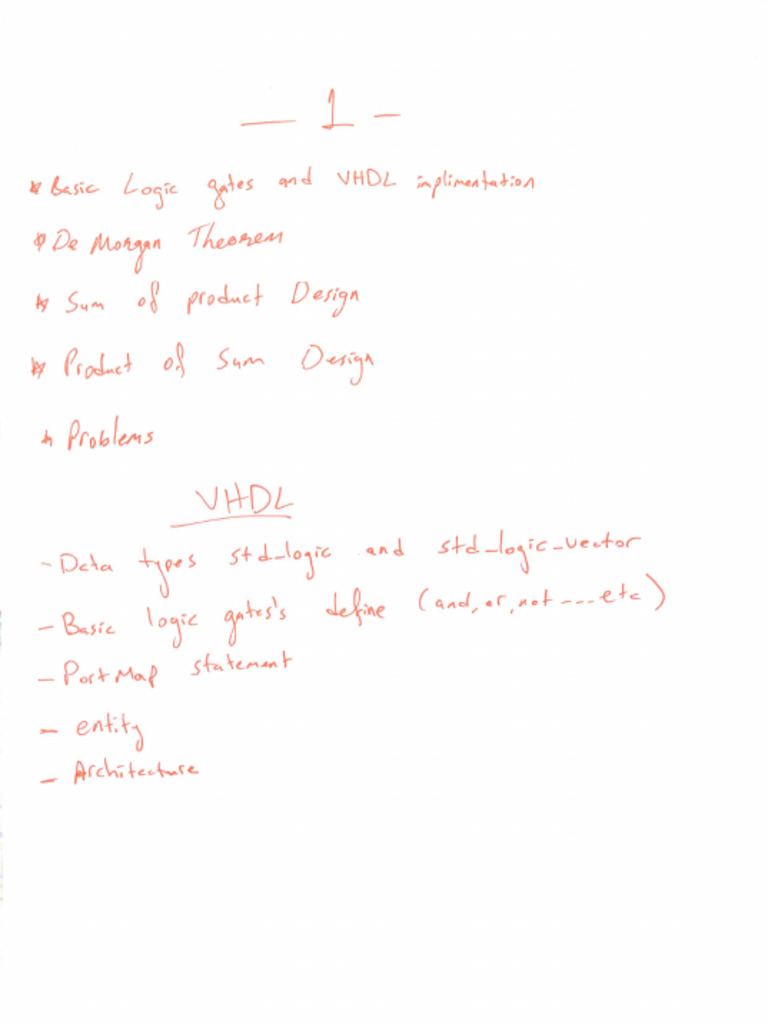 — 1 -
* Basic Logic gates and VHDL implimentation
* De Morgan Theorem
* Sum of product Design
* Product of Sum Design
* Problems
VHDL
- Data types std_logic and std_logic_vector
- Basic logic gates's define (and, or, not ---- etc)
- Port Map statement
- entity
- Architecture